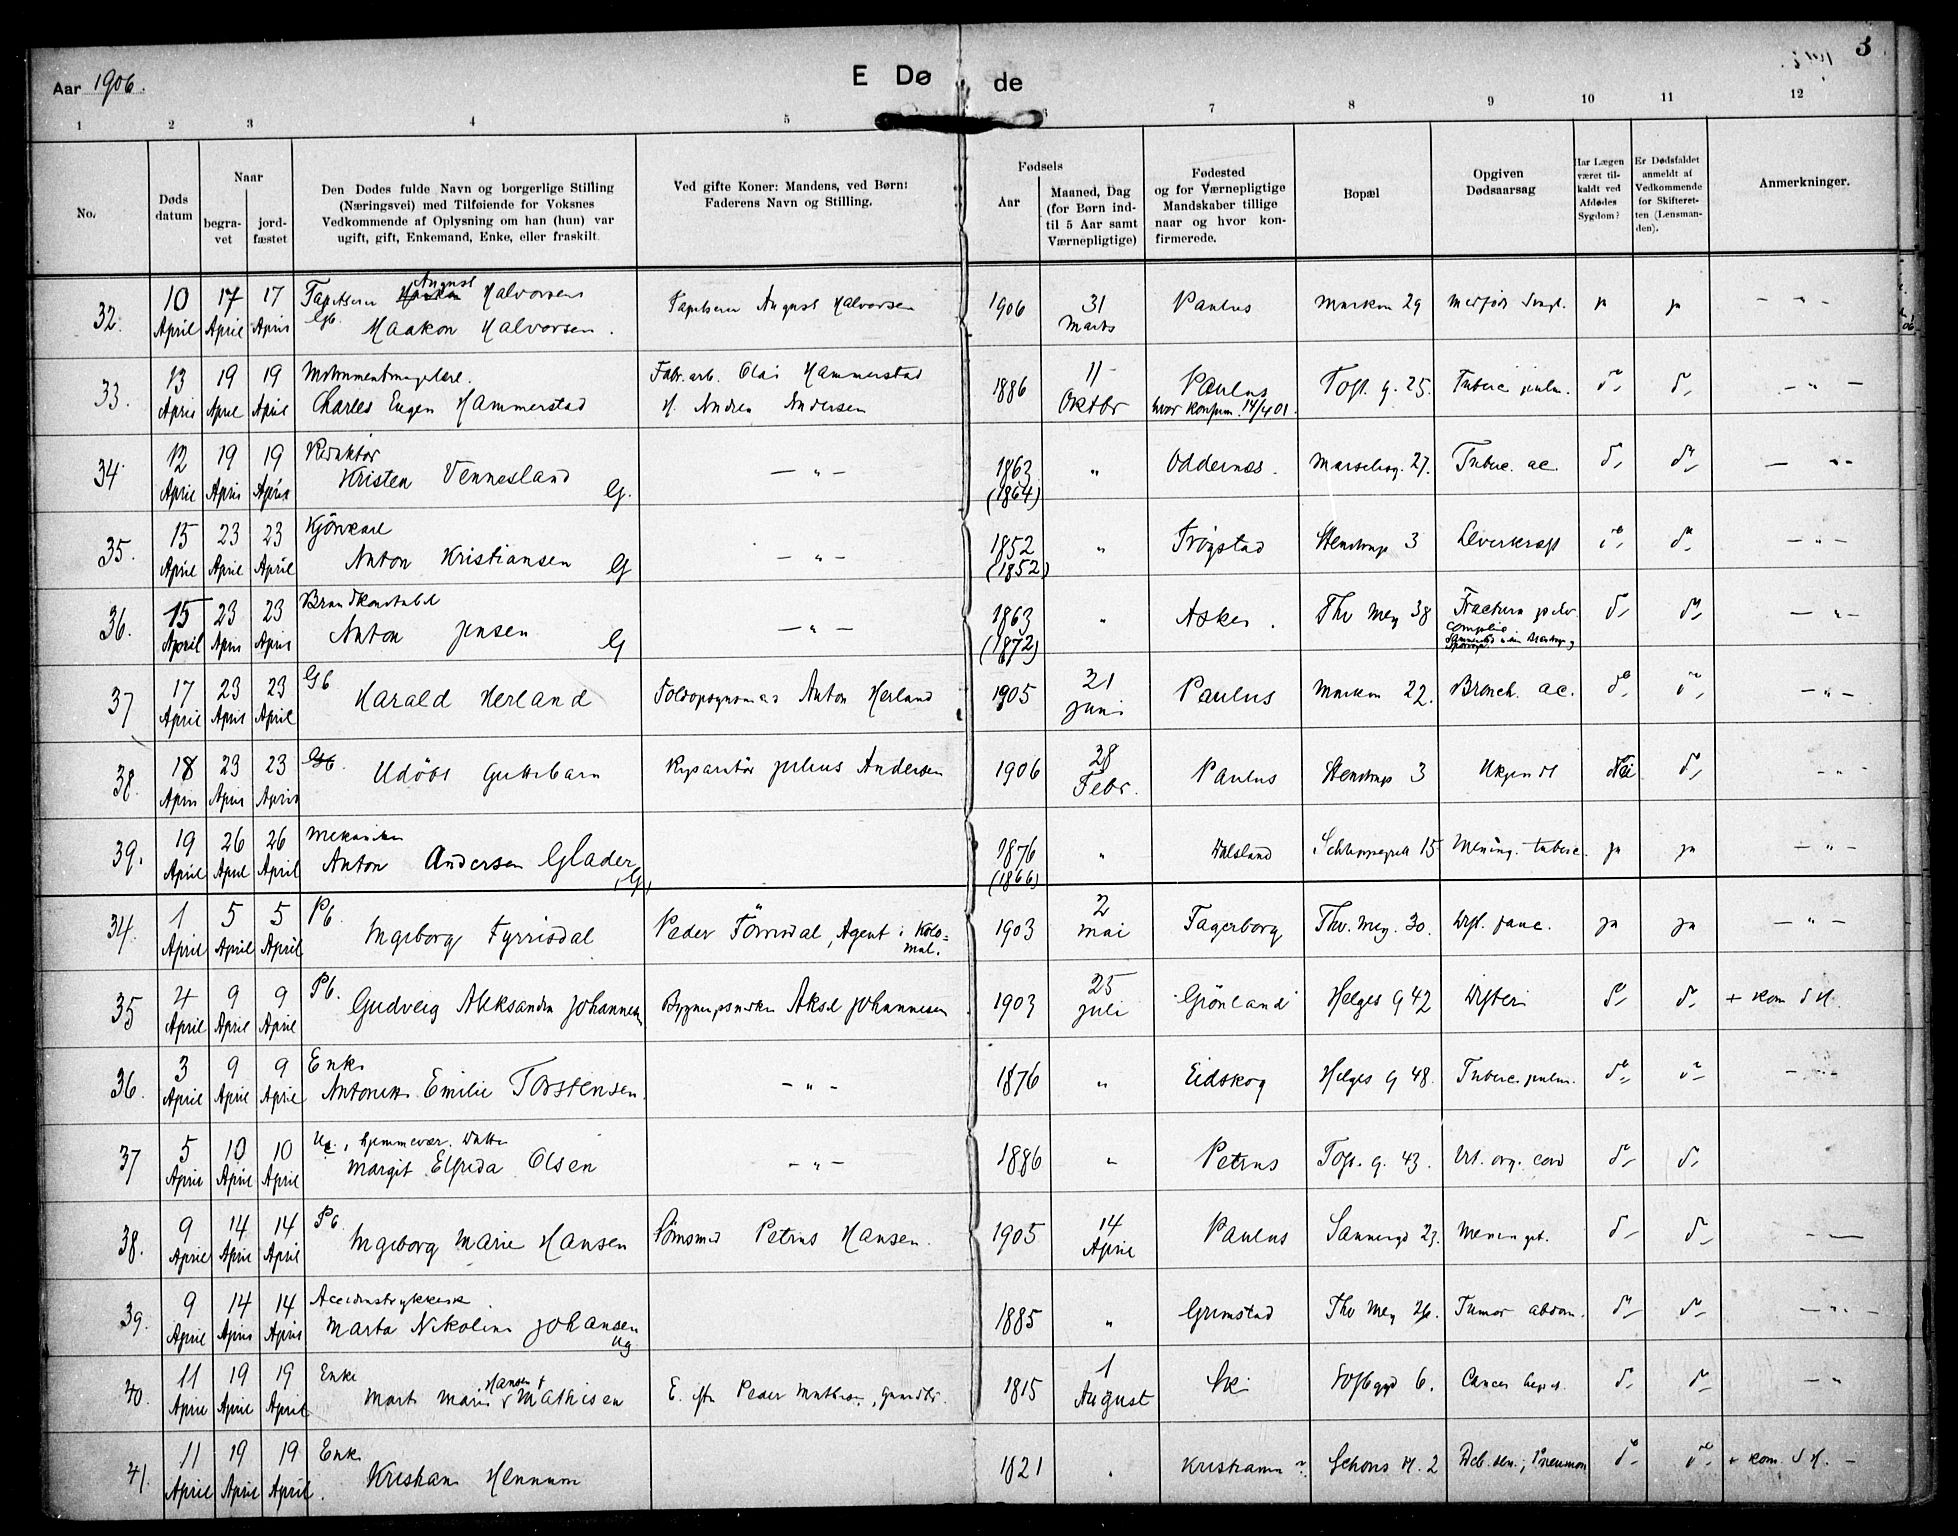 Aar 1906.
E Dø de
3
1 2 3 4 5 6 7 8 9 10 11 12
No.
Døds datum
Naar
begravet
jordfæstet
Den Dødes fulde Navn og borgerlige Stilling
(Næringsvei) med Tilføiende for Voksnes
Vedkommende af Oplysning om han (hun) var
ugift, gift, Enkemand, Enke, eller fraskilt.
Ved gifte Koner: Mandens, ved Børn:
Faderens Navn og Stilling.
Fødsels
Aar
Maaned, Dag
(for Børn ind-
til 5 Aar samt
Værnepligtige)
Fødested
og for Værnepligtige
Mandskaber tillige
naar og hvor kon-
firmerede.
Bopæl
Opgiven
Dødsaarsag
Har Lægen
været til-
kaldt ved
Afdødes
Sygdom?
Er Dødsfaldet
anmeldt af
Vedkommende
for Skifteret-
ten (Lensman-
den).
Anmerkninger.
32. 10 April 17 April 17 April Tapetserer August Halvorsens Gb. Haakon Halvorsen. Tapetserer August Halvorsen 1906 31 Marts Paulus Markvn 29 ja ja — " —
33. 13 April 19 April 19 April Charles Eugen Hammerstad Fabr. arb. Olai Hammerstad H. Andrea Andersen 1886 11 Oktbr Paulus hvor konfirm. 14/4 01. Toft. g. 25. Tuberc. pulm. d° d° — " —
34. 12 April 19 April 19 April Redaktør Kristen Vennesland G. — " — 1863 (1864) " Oddernes. 27. Tuberc. ac. d° d° — " —
35. 15 April 23 April 23 April Kjørekarl Anton Kristiansen G — " — 1852 (1852) " Trøgstad Stenstrup 3 Leverkræft d° d° — " —
36. 15 April 23 April 23 April Brandkonstabel Anton Jensen G — " — 1863 (1872) " Asker. Thv Mey 38 Fractura pelv. complic. d° d° — " —
37 17 April 23 April 23 April Gb Harald Herland Anton Herland 1905 21 Juni Paulus Markvn 22. Bronch. ac. d° d° — " —
38. 18 April 23 April 23 April Gb. Udøbt Guttebarn Reparatør Julius Andersen 1906 28 Febr. Paulus Stenstrup 3 Ukjendt Nei d° — " —
39. 19 April 26 April 26 April Mekaniker Anton Andersen Glader G. 1876 (1866) " Dalsland Schleppegrell 15 Mening. tuberc. ja ja — " —
34. 1 April 5 April 5 April Pb. Ingeborg Tyrrisdal Peder Tørrisdal, Agent i Kolo= nial. 1903 2 Mai Fagerborg Thv. Mey. 30. Dift. fauc. ja ja — " —
35 4 April 9 April 9 April Pb. Gudveig Aleksandra Johannesen Aksel Johannesen 1903 25 Juli Grønland Helges g 42 Difteri d° d° + kom. S H.
36. 3 April 9 April 9 April Enke Antonette Emilie Torstensen. — " — 1876 " Eidskog Helges g 48. Tuberc. pulm. d° d° — " —
37 5 April 10 April 10 April Ug., hjemmevær. Datter Margit Elfrida Olsen — " — 1886 " Petrus Toft. g. 43. Vit. org. cord d° d°
38. 9 April 14 April 14 April Pb. Ingeborg Marie Hansen Petrus Hansen. 1905 14 April Paulus Sannergd 23. Meningit. d° d° — " —
39. 9 April 14 April 14 April Marta Nikoline Johansen Ug 1885 " Grimstad Thv Mey 26. Tumor abdom. d° d° — " —
40. 11 April 19 April 19 April Enke Marte Marie Hansen + Mathisen E. eft. Peder Mathisen, gaardbr. 1815 1 August Ski Toftegd 6. Cancer hepat. d° d° — " —
41. 11 April 19 April 19 April Enke Kristiane Hennum 1821 " Kristiania Schous Pl. 2 Deb. sen., Pneumon d° d° + kom. S H. —